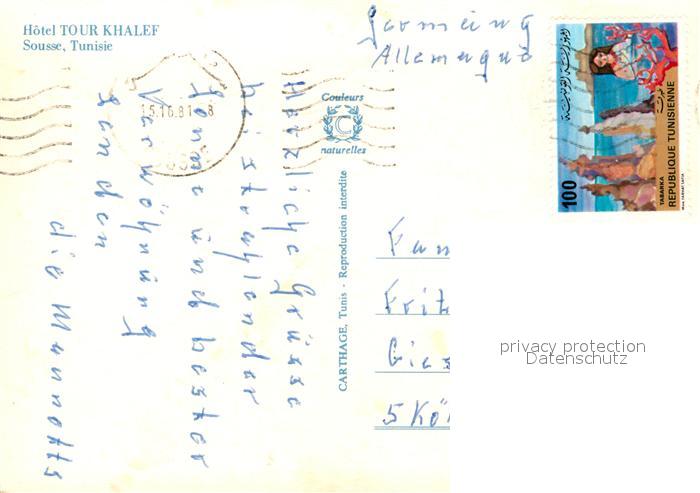 Hôtel TOUR KHALEF
Sousse, Tunisie
Germany
Allemagne
15.10.81
Couleurs
C
naturelles
CARTHAGE, Tunis - Reproduction interdite
Herzliche Grüsse
bei strahlender
Sonne und bester
Verwöhnung
senden
die Mannotts
Fam
Fritz
Gies
5 Kö
100
TABARKA
REPUBLIQUE TUNISIENNE
الجمهورية التونسية
privacy protection
Datenschutz